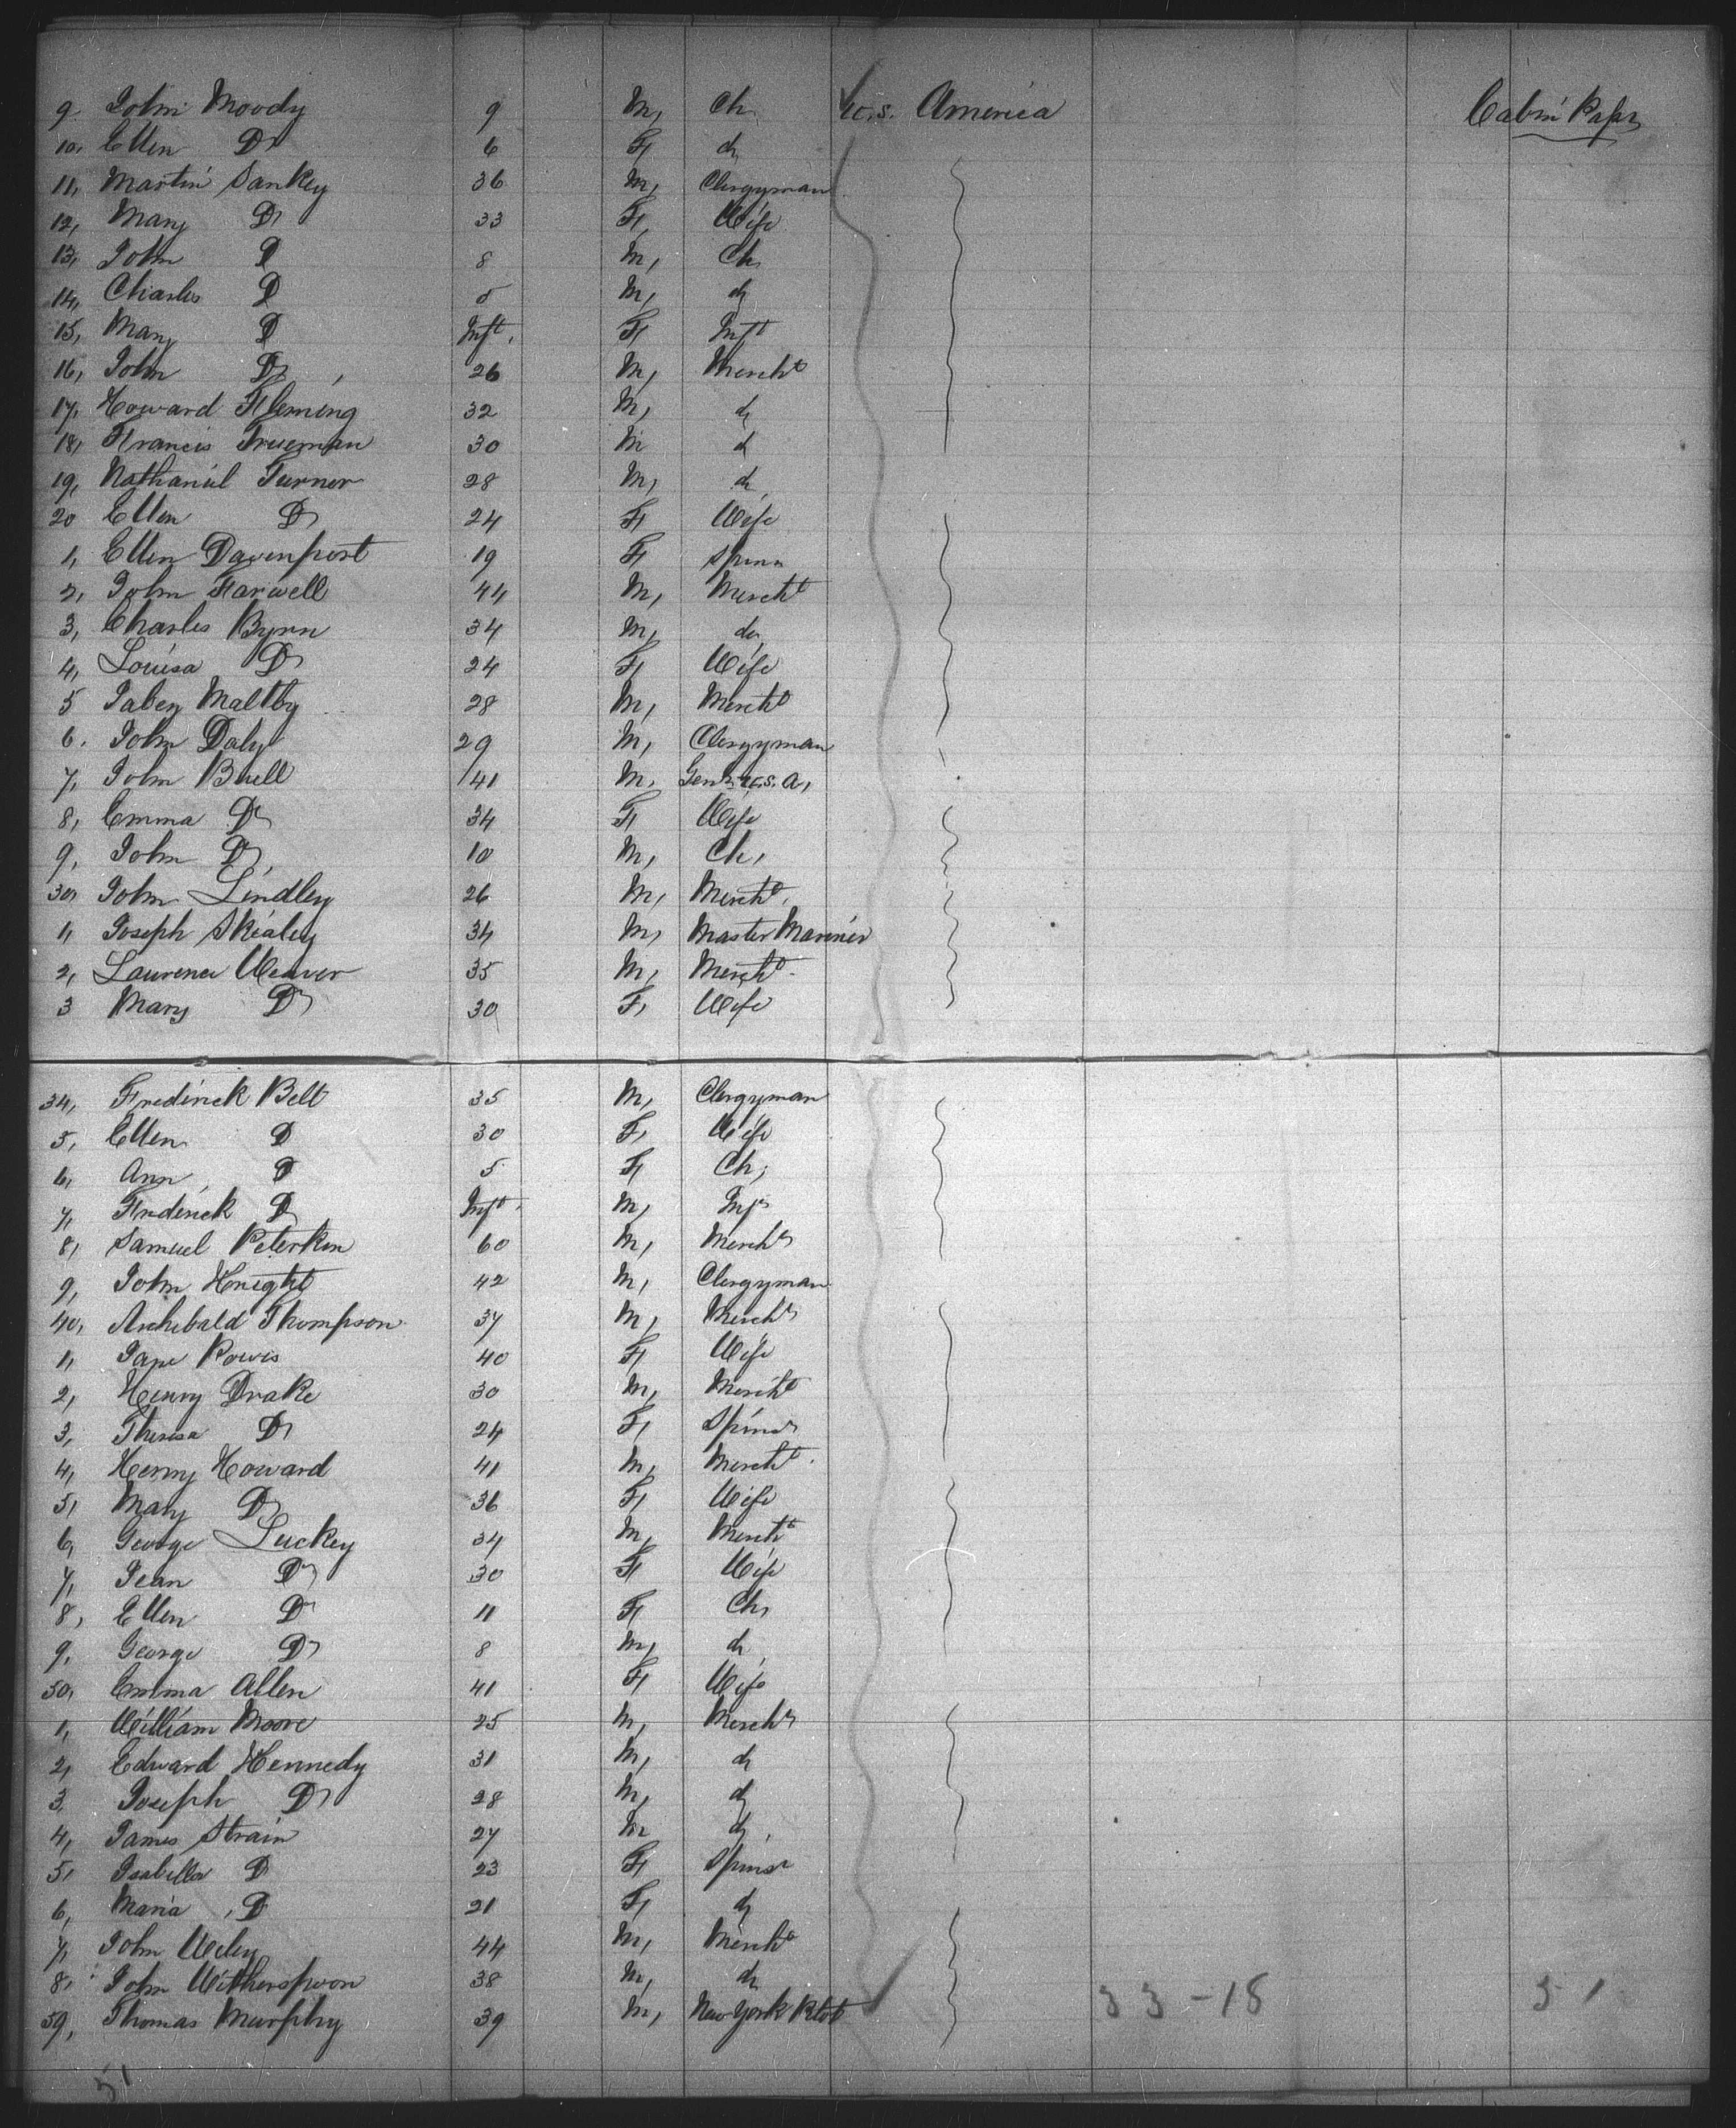 9 John Moody 9 M, Ch U.S. America Cabin Passr
10, Ellen Do 6 F, do
11, Martin Sankey 36 M, Clergyman
12, Mary Do 33 F, Wife
13, John D 8 M, Ch,
14, Charles D 5 M, do
15, Mary D Inft. F, Inft
16, John Do 26 M, Mercht
17, Howard Fleming 32 M, do
18, Francis Trueman 30 M do
19, Nathaniel Turner 28 M, do
20 Ellen Do 24 F, Wife
1, Ellen Davenport 19 F, Spinr
2, John Farwell 44 M, Mercht
3, Charles Byrn 34 M, do,
4, Louisa Do 24 F, Wife
5 Jabez Maltby 28 M, Mercht
6. John Daly 29 M, Clergyman
7, John Buell 41 M. Genl. U.S. A,
8, Emma Do 34 F, Wife
9, John Do, 10 M, Ch,
30, John Lindley 26 M, Mercht.
1, Joseph 34 M, Master Mariner
2, Laurence Weaver 35 M, Mercht.
3 Mary Do 30 F, Wife
34, Frederick Belt 35 M, Clergyman
5, Ellen D 30 F, Wife
6, Ann D 5 F, Ch,
7, Frederick Do Inft. M, Inft
8, Samuel Peterkin 60 M, Mercht
9, John Knight 42 M, Clergyman
40, Archibald Thompson 37 M, Mercht
1, Jane Powis 40 F, Wife
2, Henry Drake 30 M, Mercht
3, Theresa Do 24 F, Spinsr
4, Henry Howard 41 M, Mercht.
5, Mary Do 36 F, Wife
6, George Luckey 34 M, Mercht
7, Jean Do 30 F, Wife
8, Ellen Do 11 F, Ch,
9, George Do 8 M, do
50, Emma Allen 41 F, Wife
1, William Moore 25 M, Mercht
2, Edward Kennedy 31 M, do
3, Joseph Do 28 M, do
4, James Strain 27 M do,
5, Isabella D 23 F, Spinsr
6, Maria D 21 F, do
7, John 44 M, Mercht
8, John Witherspoon 38 M, do
59, Thomas Murphy 39 M, New York Pilot 33-18 51
51